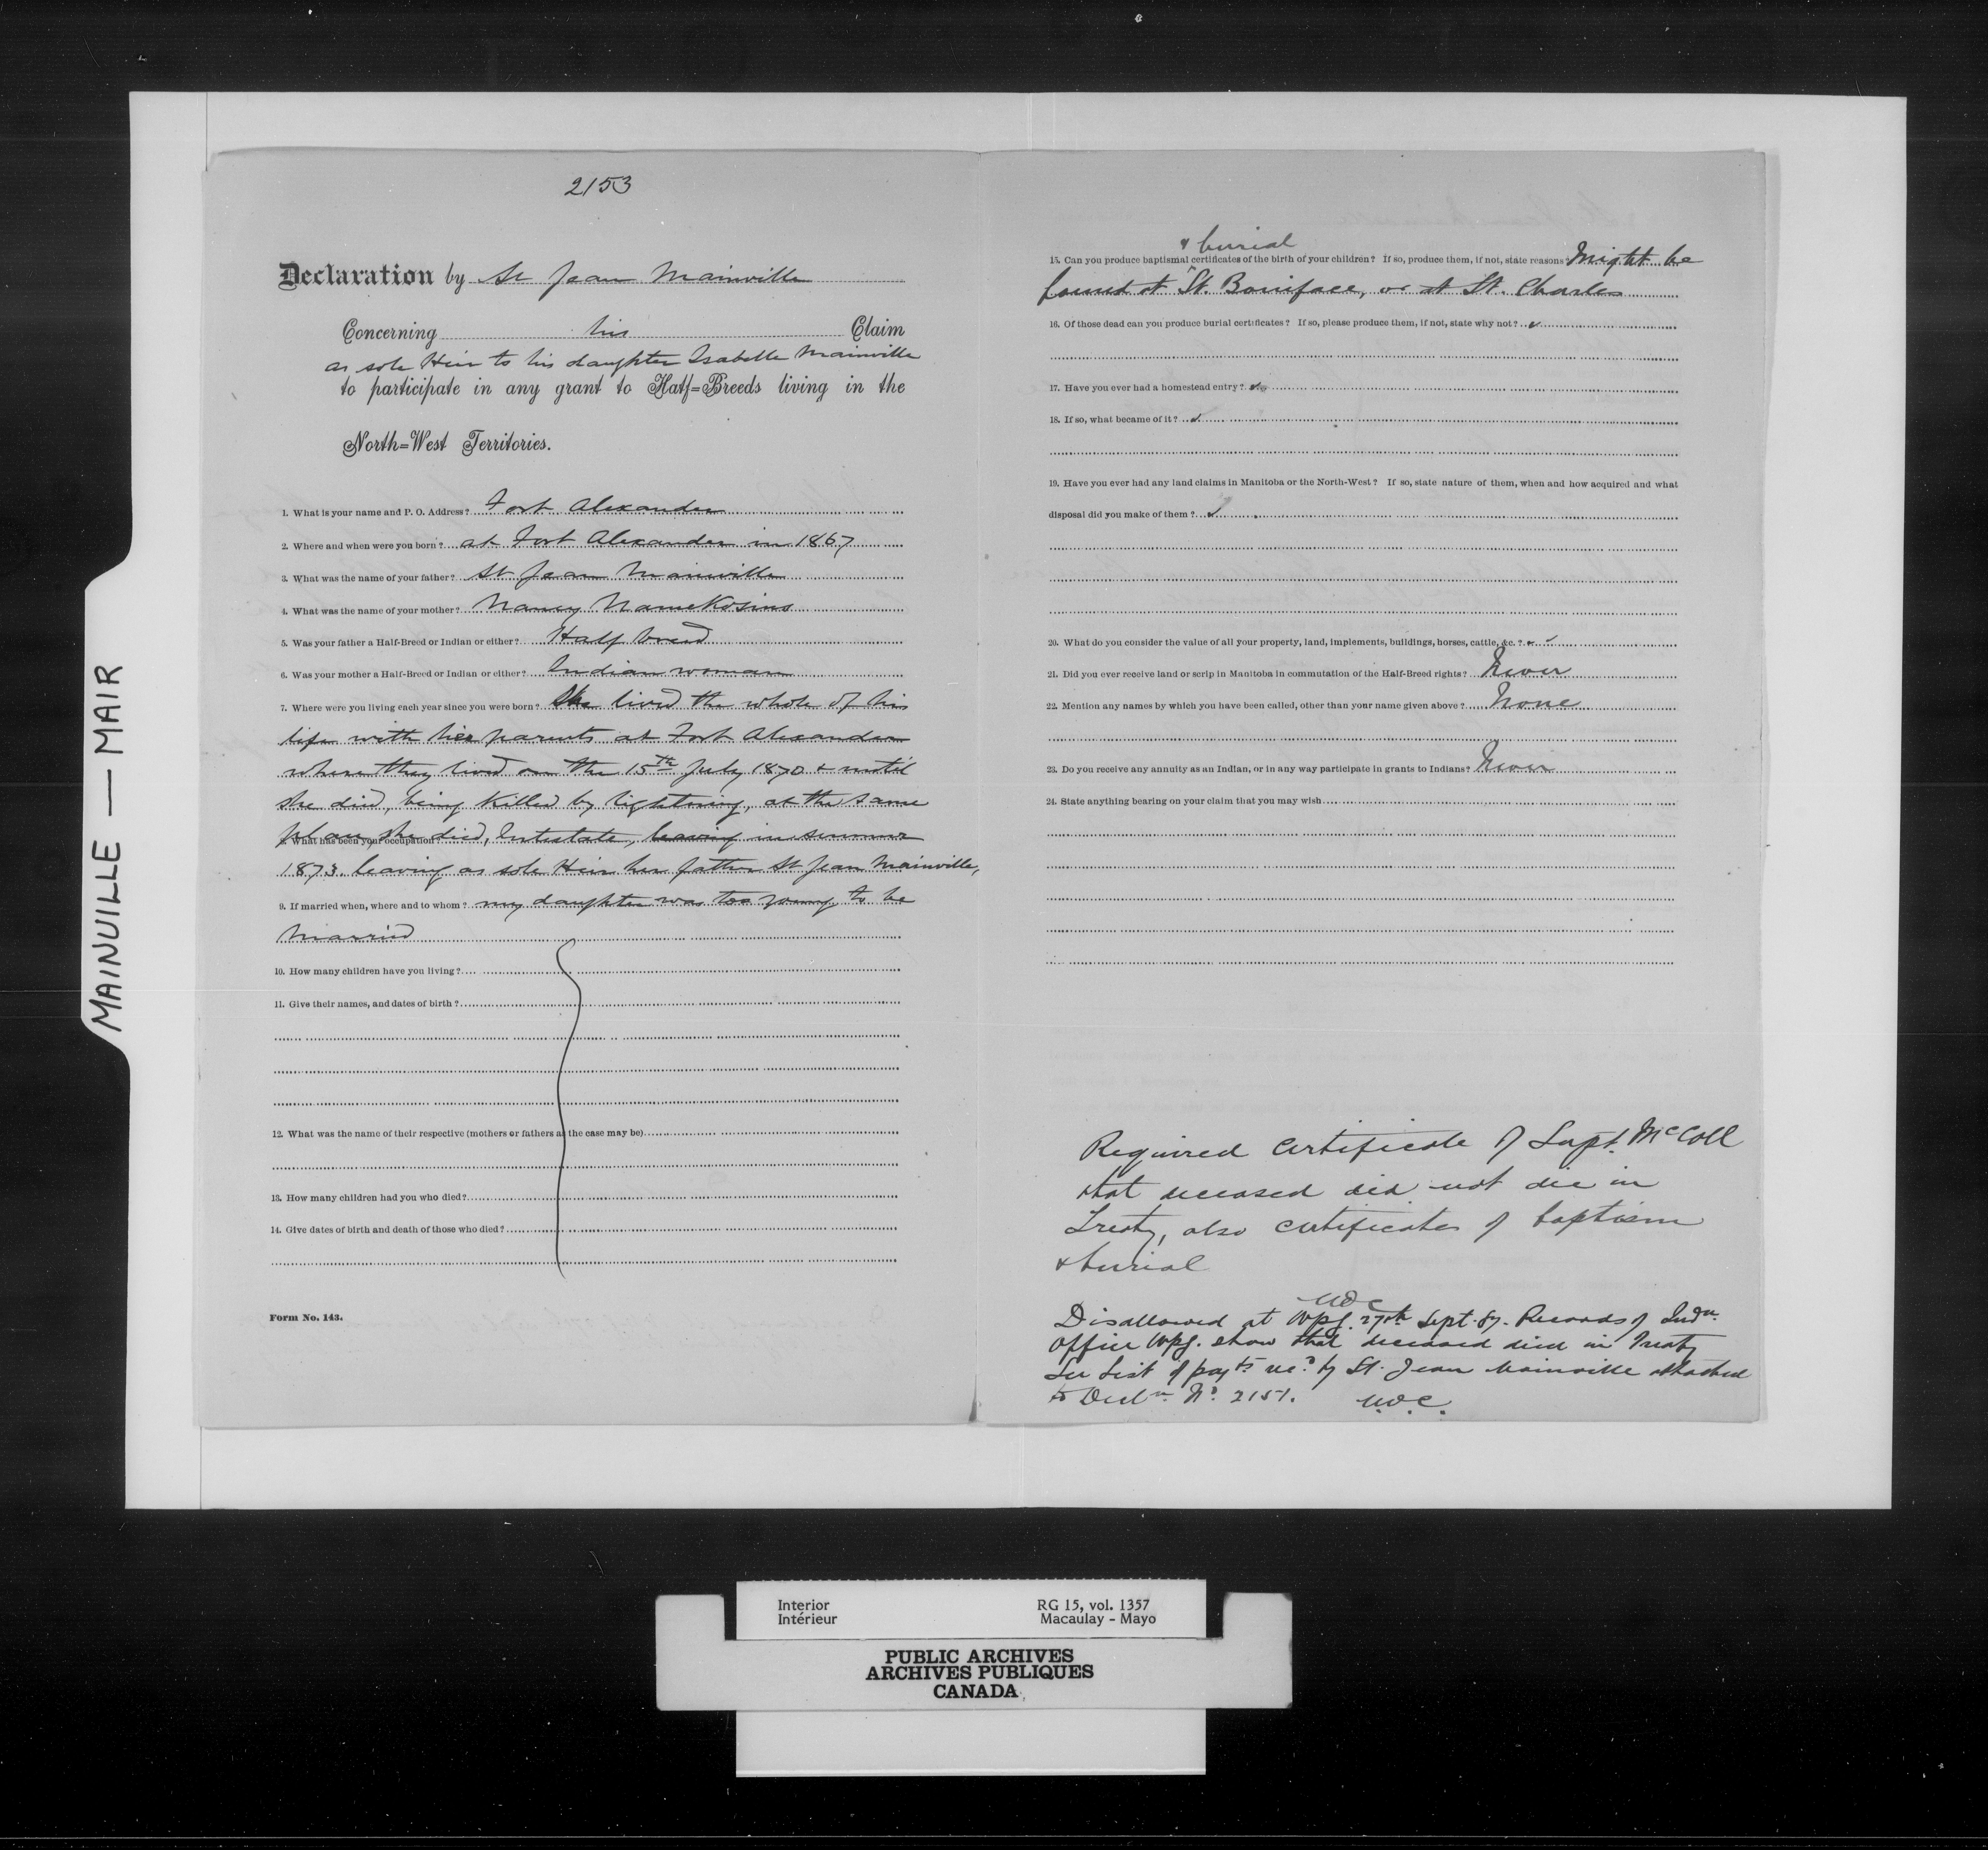 2153
Declaration by St Jean Mainville
Concerning his Claim
as sole Heir to his daughter Isabelle Mainville
to participate in any grant to Half=Breeds living in the
North=West Territories.
1. What is your name and P. O. Address? Fort Alexander
2. Where and when were you born? at Fort Alexander in 1867
3. What was the name of your father? St Jean Mainville
4. What was the name of your mother? Nancy Namekosins
5. Was your father a Half-Breed or Indian or either? Half breed
6. Was your mother a Half-Breed or Indian or either? Indian woman
7. Where were you living each year since you were born? She lived the whole of his
life with her parents at Fort Alexander
where they lived on the 15th July 1870 & until
she died, being killed by lightning, at the same
place, she died, Intestate, leaving in summer
8. What has been your occupation
1873. leaving as sole Heir her father St Jean Mainville,
9. If married when, where and to whom? my daughter was too young to be
married
10. How many children have you living?
11. Give their names, and dates of birth?
12. What was the name of their respective (mothers or fathers as the case may be)
13. How many children had you who died?
14. Give dates of birth and death of those who died?
Form No. 143.
& burial
15. Can you produce baptismal certificates of the birth of your children? If so, produce them, if not, state reasons? Might be
found at St. Boniface, or at St. Charles
16. Of those dead can you produce burial certificates? If so, please produce them, if not, state why not?
17. Have you ever had a homestead entry?
18. If so, what became of it?
19. Have you ever had any land claims in Manitoba or the North-West? If so, state nature of them, when and how acquired and what
disposal did you make of them?
20. What do you consider the value of all your property, land, implements, buildings, horses, cattle, &c.?
21. Did you ever receive land or scrip in Manitoba in commutation of the Half-Breed rights? Never
22. Mention any names by which you have been called, other than your name given above? None
23. Do you receive any annuity as an Indian, or in any way participate in grants to Indians? Never
24. State anything bearing on your claim that you may wish
Required Certificate of Supt. McColl
that deceased did not die in
Treaty, also certificates of baptism
& burial
Disallowed at Wpg. 27th Sept. 87. Records of Indn.
office Wpg. show that deceased died in Treaty
See List of payts recd by St. Jean Mainville attached
to Decln. No. 2151.
MAINVILLE — MAIR
Interior RG 15, vol. 1357
Intérieur Macaulay - Mayo
PUBLIC ARCHIVES
ARCHIVES PUBLIQUES
CANADA